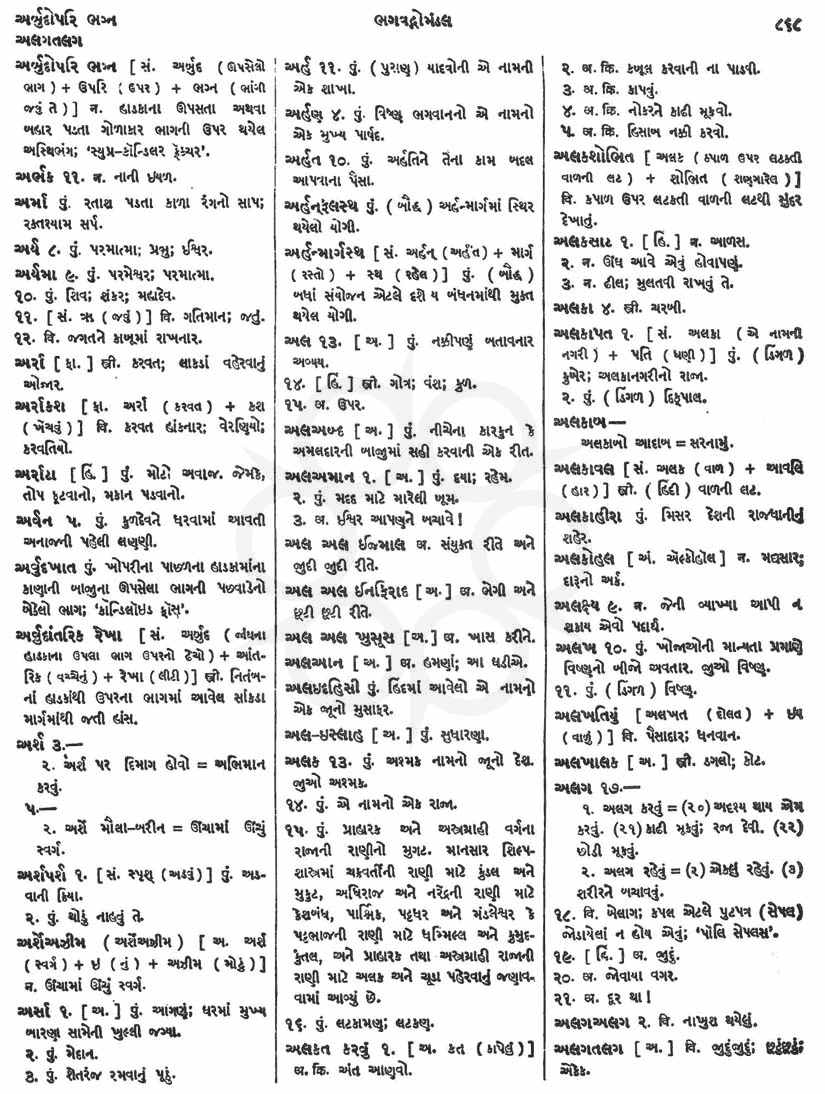 અર્બુદોપરિ ભગ્ન
અલગતલગ
ભગવદ્ગોમંડલ
૮૬૮
અર્બુદોપરિ ભગ્ન [ સં. અર્બુદ ( ઊપસેલો
ભાગ ) + ઉપરિ ( ઉપર ) + ભગ્ન ( ભાંગી
જવું તે ) ] ન. હાડકાના ઊપસતા અથવા
બહાર પડતા ગોળાકાર ભાગની ઉપર થયેલ
અસ્થિભંગ; ‘સુપ્રા-કૉન્ડિલર ફ્રેક્ચર’.
અર્ભક ૧૧. ન. નાની ઇયળ.
અર્મા પું. રતાશ પડતા કાળા રંગનો સાપ;
રક્તશ્યામ સર્પ.
અર્ય ૮. પું. પરમાત્મા; પ્રભુ; ઈશ્વર.
અર્યમા ૯. પું. પરમેશ્વર; પરમાત્મા.
૧૦. પું. શિવ; શંકર; મહાદેવ.
૧૧. [ સં. ઋ ( જવું ) ] વિ. ગતિમાન; જતું.
૧૨. વિ. જગતને કાબૂમાં રાખનાર.
અર્રા [ ફા. ] સ્ત્રી. કરવત; લાકડાં વહેરવાનું
ઓજાર.
અર્રાકશ [ ફા. અર્રા ( કરવત ) + કશ
( ખેંચવું ) ] વિ. કરવત હાંકનાર; વેરણિયો;
કરવતિયો.
અર્રાટા [ હિં. ] પું. મોટો અવાજ. જેમકે,
તોપ ફૂટવાનો, મકાન પડવાનો.
અર્વન ૫. પું. કુળદેવને ધરવામાં આવતી
અનાજની પહેલી લણણી.
અર્વુદખાત પું. ખોપરીના પાછળના હાડકામાંના
કાણાની બાજુના ઉપસેલા ભાગની પછવાડેનો
બેઠેલો ભાગ; ‘કૉન્ડિલૉઇડ ફોસ’.
અર્વુદાંતરિક રેખા [ સં. અર્બુદ ( જાંઘના
હાડકાના ઉપલા ભાગ ઉપરનો ટેચો ) + આંત-
રિક ( વચ્ચેનું ) + રેખા ( લીટી ) ] સ્ત્રી. નિતંબ-
નાં હાડકાંથી ઉપરના ભાગમાં આવેલ સાંકડા
માર્ગમાંથી જતી હાંસ.
અર્શ ૩.—
૨. અર્શ પર દિમાગ હોવો = અભિમાન
કરવું.
૫.—
૨. અર્શે મૌલા-બરીન = ઊંચામાં ઊંચું
સ્વર્ગ.
અર્શપર્શ ૧. [ સં. સ્પૃશ્ ( અડવું ) ] પું. અડ-
વાની ક્રિયા.
૨. પું. થોડું નાહવું તે.
અર્શેઅઝીમ ( અર્શેઅઝીમ ) [ અ. અર્શ
( સ્વર્ગ ) + ઇ ( નું ) + અઝીમ ( મોટું ) ]
ન. ઊંચામાં ઊંચું સ્વર્ગ.
અર્સા ૧. [ અ. ] પું. આંગણું; ઘરમાં મુખ્ય
બારણા સામેની ખુલ્લી જગ્યા.
૨. પું. મેદાન.
૩. પું. શેતરંજ રમવાનું પૂઠું.
અર્હુ ૧૧. પું. ( પુરાણ ) યાદવોની એ નામની
એક શાખા.
અર્હુણ ૪. પું. વિષ્ણુ ભગવાનનો એ નામનો
એક મુખ્ય પાર્ષદ.
અર્હત ૧૦. પું. અર્હતિને તેના કામ બદલ
આપવાના પૈસા.
અર્હન્ફલસ્થ પું. ( બૌદ્ધ ) અર્હન્માર્ગમાં સ્થિર
થયેલો યોગી.
અર્હન્માર્ગસ્થ [ સં. અર્હન્ ( અર્હંત ) + માર્ગ
( રસ્તો ) + સ્થ ( રહેલ ) ] પું. ( બૌદ્ધ )
બધાં સંયોજન એટલે દશે ય બંધનમાંથી મુક્ત
થયેલ યોગી.
અલ ૧૩. [ અ. ] પું. નક્કીપણું બતાવનાર
અવ્યય.
૧૪. [ હિં. ] સ્ત્રી. ગોત્ર; વંશ; કુળ.
૧૫. અ. ઉપર.
અલઅબ્દ [ અ. ] પું. નીચેના કારકુન કે
અમલદારની બાજુમાં સહી કરવાની એક રીત.
અલઅમાન ૧. [ અ. ] પું. દયા; રહેમ.
૨. પું. મદદ માટે મારેલી બૂમ.
૩. અ. ઈશ્વર આપણને બચાવે !
અલ અલ ઇજ્માલ અ. સંયુક્ત રીતે અને
જુદી જુદી રીતે.
અલ અલ ઇનફિરાદ [ અ. ] અ. ભેગી અને
છૂટી છૂટી રીતે.
અલ અલ ખુસૂસ [ અ. ] અ. ખાસ કરીને.
અલઆન [ અ. ] અ. હમણાં; આ ઘડીએ.
અલઇદહિસી પું. હિંદમાં આવેલો એ નામનો
એક જૂનો મુસાફર.
અલ-ઇસ્લાહ [ અ. ] પું. સુધારણા.
અલક ૧૩. પું. અશ્મક નામનો જૂનો દેશ.
જુઓ અશ્મક.
૧૪. પું. એ નામનો એક રાજા.
૧૫. પું. પ્રાહારક અને અસ્ત્રગ્રાહી વર્ગના
રાજાની રાણીનો મુગટ. માનસાર શિલ્પ-
શાસ્ત્રમાં ચક્રવર્તીની રાણી માટે કુંડલ અને
મુકુટ, અધિરાજ અને નરેંદ્રની રાણી માટે
કેશબંધ, પાર્ષ્ણિક, પટ્ટધર અને મંડલેશ્વર કે
પટ્ટભાજની રાણી માટે ધમ્મિલ્લ અને કુમુદ-
કુંતલ, અને પ્રાહારક તથા અસ્ત્રગ્રાહી રાજાની
રાણી માટે અલક અને ચૂડા પહેરવાનું જણાવ-
વામાં આવ્યું છે.
૧૬. પું. લટકામણ; લટકણ.
અલકત કરવું ૧. [ અ. કત ( કાપેલું ) ]
અ. ક્રિ. અંત આણવો.
૨. અ. ક્રિ. કબૂલ કરવાની ના પાડવી.
૩. અ. ક્રિ. કાપવું.
૪. અ. ક્રિ. નોકરને કાઢી મૂકવો.
૫. અ. ક્રિ. હિસાબ નક્કી કરવો.
અલકશોભિત [ અલક ( કપાળ ઉપર લટકતી
વાળની લટ ) + શોભિત ( શણગારેલ ) ]
વિ. કપાળ ઉપર લટકતી વાળની લટથી સુંદર
દેખાતું.
અલકસાટ ૧. [ હિં. ] ન. આળસ.
૨. ન. ઊંઘ આવે એવું હોવાપણું.
૩. ન. ઢીલ; મુલતવી રાખવું તે.
અલકા ૪. સ્ત્રી. ચરબી.
અલકાપત ૧. [ સં. અલકા ( એ નામની
નગરી ) + પતિ ( ધણી ) ] પું. ( ડિંગળ )
કુબેર; અલકાનગરીનો રાજા.
૨. પું. ( ડિંગળ ) દિક્પાલ.
અલકાબ—
અલકાબો આદાબ = સરનામું.
અલકાવલ [ સં. અલક ( વાળ ) + આવલિ
( હાર ) ] સ્ત્રી. ( હિંદી ) વાળની લટ.
અલકાહીરા પું. મિસર દેશની રાજધાનીનું
શહેર.
અલકોહુલ [ અં. ઍલ્કોહૉલ ] ન. મદ્યસાર;
દારૂનો અર્ક.
અલક્ષ્ય ૯. ન. જેની વ્યાખ્યા આપી ન
શકાય એવો પદાર્થ.
અલખ ૧૦. પું. ખોજાઓની માન્યતા પ્રમાણે
વિષ્ણુનો બીજો અવતાર. જુઓ વિષ્ણુ.
૧૧. પું. ( ડિંગળ ) વિષ્ણુ.
અલખતિયું [ અલખત ( દોલત ) + ઇયું
( વાળું ) ] વિ. પૈસાદાર; ધનવાન.
અલખાલક [ અ. ] સ્ત્રી. ડગલો; કોટ.
અલગ ૧૭.—
૧. અલગ કરવું = (૨૦) અદૃશ્ય થાય એમ
કરવું. (૨૧) કાઢી મૂકવું; રજા દેવી. (૨૨)
છોડી મૂકવું.
૨. અલગ રહેવું = (૨) એકલું રહેવું. (૩)
શરીરને બચાવવું.
૧૮. વિ. બેલાગ; કપલ એટલે પુટપત્ર (સેપલ)
જોડાયેલાં ન હોય એવું; ‘પૉલિ સેપલસ’.
૧૯. [ હિં. ] અ. જુદું.
૨૦. અ. જોવાયા વગર.
૨૧. અ. દૂર થા !
અલગઅલગ ૨. વિ. નાખુશ થયેલું.
અલગતલગ [ અ. ] વિ. જુદુંજુદું; છૂટુંછૂટું;
એકેક.